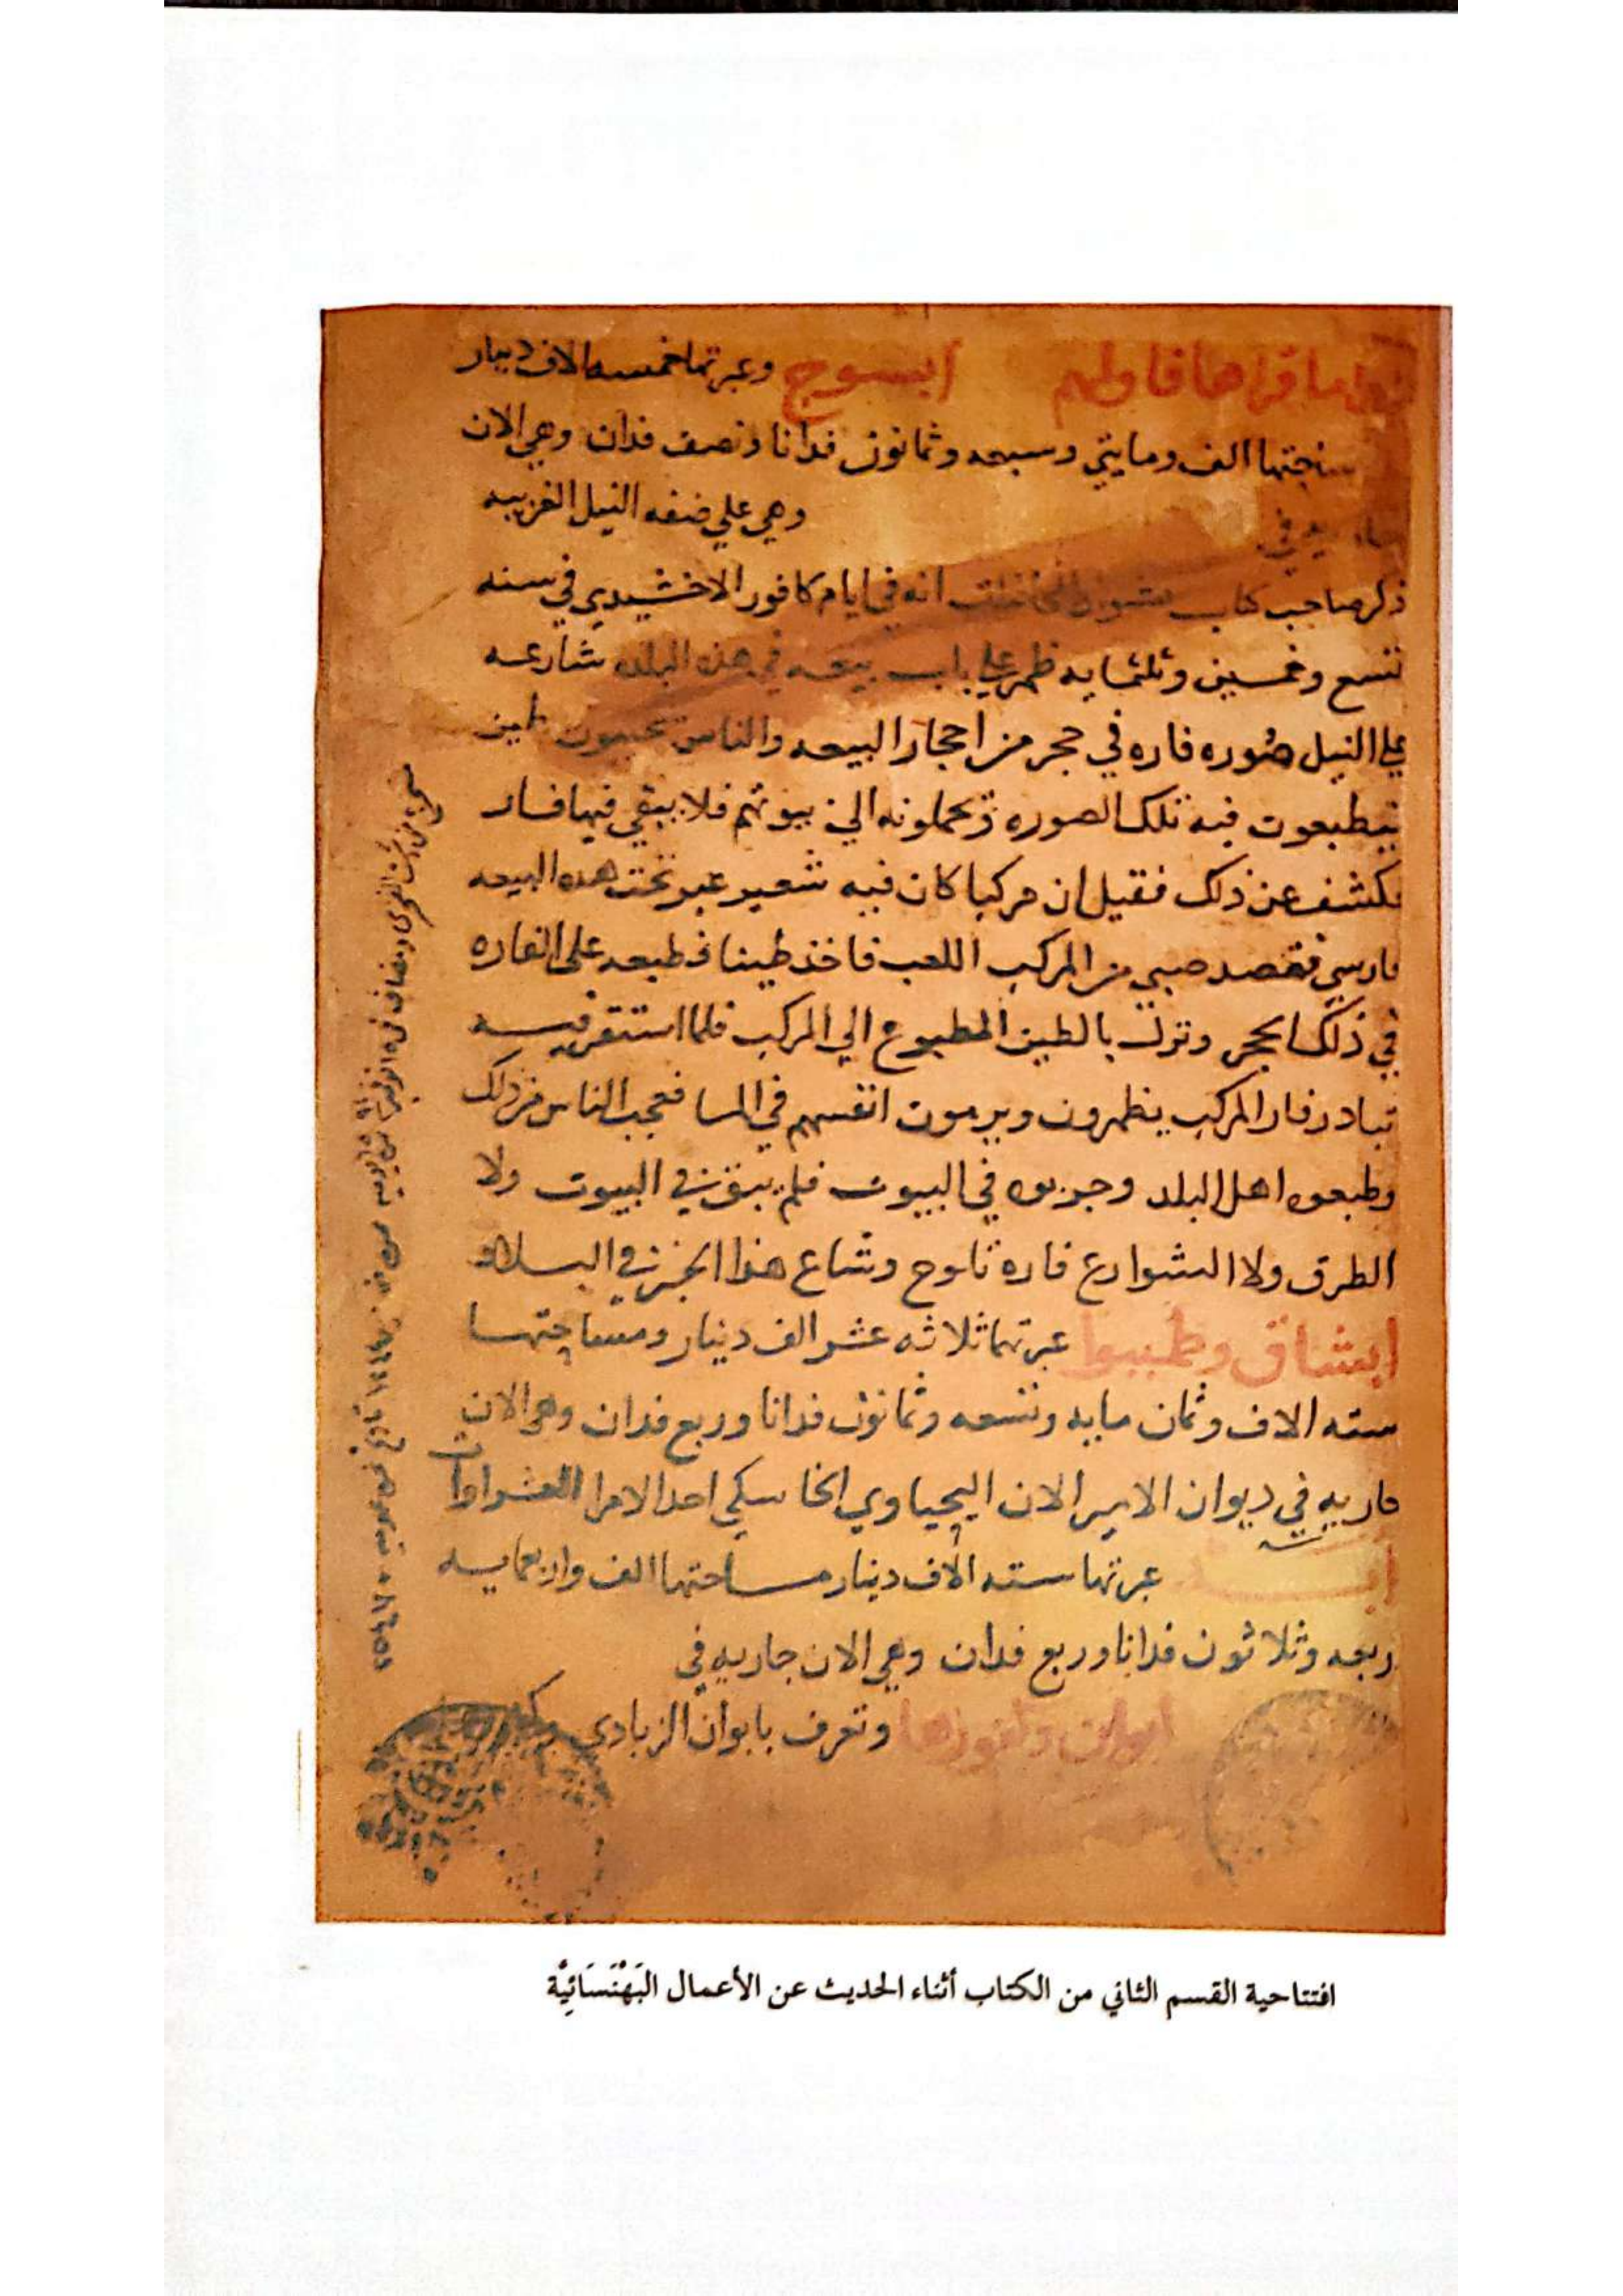 اما قراها فاولهم ابسوج وعبرتها خمسه الاف دينار
مساحتها الف ومايتي وسبعه وثمانون فدانا ونصف فدان وهي الان
في وهي علي ضفه النيل الغربيه
ذكر صاحب كتاب انه في ايام كافور الاخشيدي في سنه
تسع وخمسين وثلثمايه ظهر علي باب بيعه في هذه البلده شارعه
علي النيل صوره فاره في حجر من احجار البيعه والناس طين
يطبعون فيه تلك الصوره ويحملونه الي بيوتهم فلا يبقي فيها فار
فكشف عن ذلك فقيل ان مركبا كان فيه شعير عبر تحت هذه البيعه
فارسي فقصد صبي من المركب اللعب فاخذ طينا فطبعه علي الفاره
في ذلك الحجر ونزل بالطين المطبوع الي المركب فلما استقر فيه
تبادر فار المركب يظهرون ويرمون انفسهم في الما فعجب الناس من ذلك
وطبعوه اهل البلد وجربوه في البيوت فلم يبق في البيوت ولا
الطرق ولا الشوارع فارة تلوح وشاع هذا الخبر في البلاد
ابشاق وطمبوا عبرتها ثلاثه عشر الف دينار ومساحتها
سته الاف وثمان مايه وتسعه وثمانون فدانا وربع فدان وهي الان
جاريه في ديوان الامير الان اليحياوي الخاسكي احد الامرا العشراوات
عبرتها سته الاف دينار مساحتها الف واربعمايه
اربعه وثلاثون فدانا وربع فدان وهي الان جاريه في
ابوان وكفورها وتعرف بابوان الزبادي
افتتاحية القسم الثاني من الكتاب أثناء الحديث عن الأعمال البَهْنَسَائِيَّة